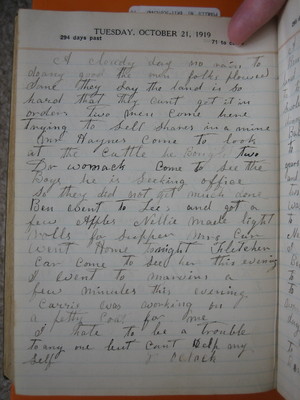 TUESDAY, OCTOBER 21, 1919
294 days past
71 to
A cloudy day no rain to
do any good the men folks plowed
some they say the land is so
hard that they can't get it in
order two men come here
trying to sell shares in a mine
Haynes come to look
at the Cattle he Bought two
Do womack come to see the
Boys he is seeking office
So they did not get much done
Ben went to and got a
few Apples Nillie made light
Rolls for Supper Mrs Carr
went Home tonight Fletcher
Carr come to see her this evening
I went to marvins a
few minutes this evening
Carrie was working on
a petty Coat for me
I hate to be a trouble
to any one but can't help my
self